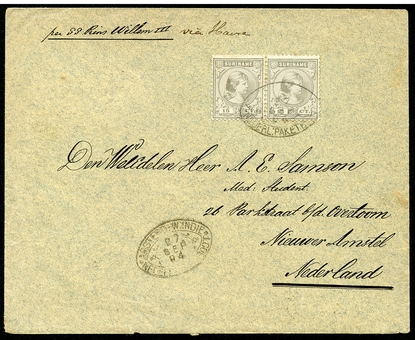 per SS Prins Willem III via Havre
SURINAME SURINAME
15
CT
NEDERL: PAKETB
Den Weledelen Heer A. E. Samson
Med: Student.
26 Parkstraat b/d. Overtoom
Nieuwer Amstel
Nederland
27
SEP
94